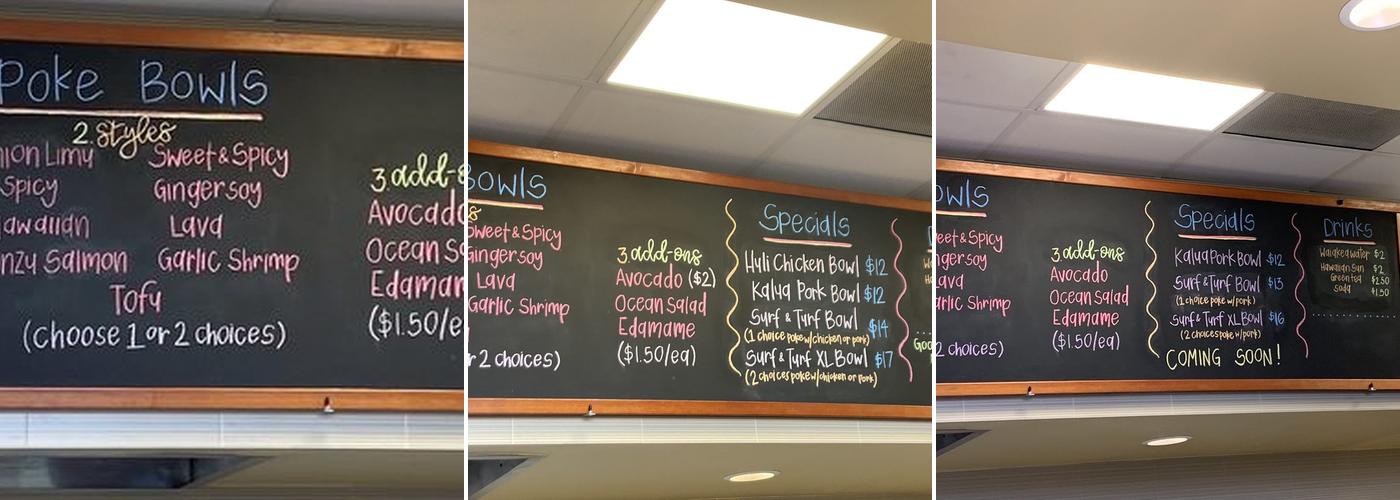 Poke Bowls
2 styles
Limu Sweet & Spicy
Spicy Gingersoy
Lava
Salmon Garlic Shrimp
Tofu
(Choose 1 or 2 choices)
3
Avocado
Ocean
($1.50/
Bowls
Sweet & Spicy
Gingersoy
Lava
Garlic Shrimp
r 2 choices)
3 add-ons
Avocado ($2)
Ocean Salad
Edamame
($1.50/ea)
Specials
Huli Chicken Bowl $12
Kalua Pork Bowl $12
Surf & Turf Bowl $14
(1 choice poke w/chicken or pork)
Surf & Turf XL Bowl $17
(2 choices poke w/chicken or pork)
& Spicy
Shrimp
2 choices)
3 add-ons
Avocado
Ocean Salad
Edamame
($1.50/ea)
Specials
Kalua Pork Bowl $12
Surf & Turf Bowl $13
(1 choice poke w/pork)
Surf & Turf XL Bowl $16
(2 choices poke w/pork)
COMING SOON!
Drinks
Waiakea water $2
Hawaiian Sun $2
Green tea $2.50
Soda $1.50